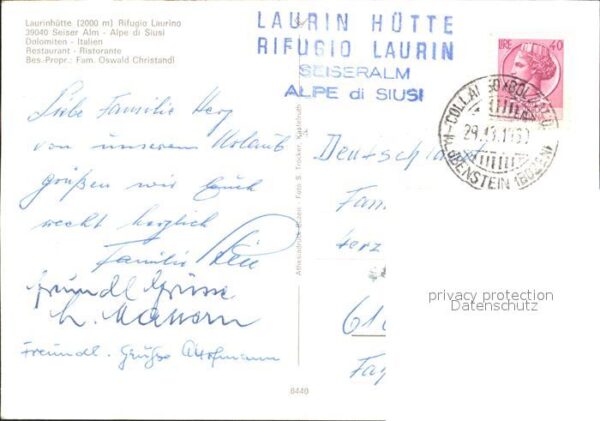 Laurinhütte (2000 m) Rifugio Laurino
39040 Seiser Alm - Alpe di Siusi
Dolomiten - Italien
Restaurant - Ristorante
Bes.-Propr.: Fam. Oswald Christandl
LAURIN HÜTTE
RIFUGIO LAURIN
SEISERALM
ALPE di SIUSI
LIRE 40
COLLALBO (BOLZANO)
KLOBENSTEIN (BOZEN)
Liebe Familie Herz
von unserem Urlaub
grüßen wir Euch
recht herzlich
Familie
Freundl Grüsse
Freundl. Grüße
Deutschland
Fam
Herz
Athesiadruck Bozen - Foto S. Trocker, Kastelruth
8440
privacy protection
Datenschutz